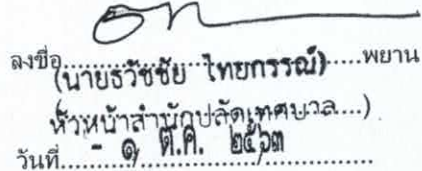 ลงชื่อ....................................พยาน
(นายธวัชชัย ไทยกรรณ์)
หัวหน้าสำนักปลัดเทศบาล....)
วันที่.....- ๑ ต.ค. ๒๕๖๓.....................